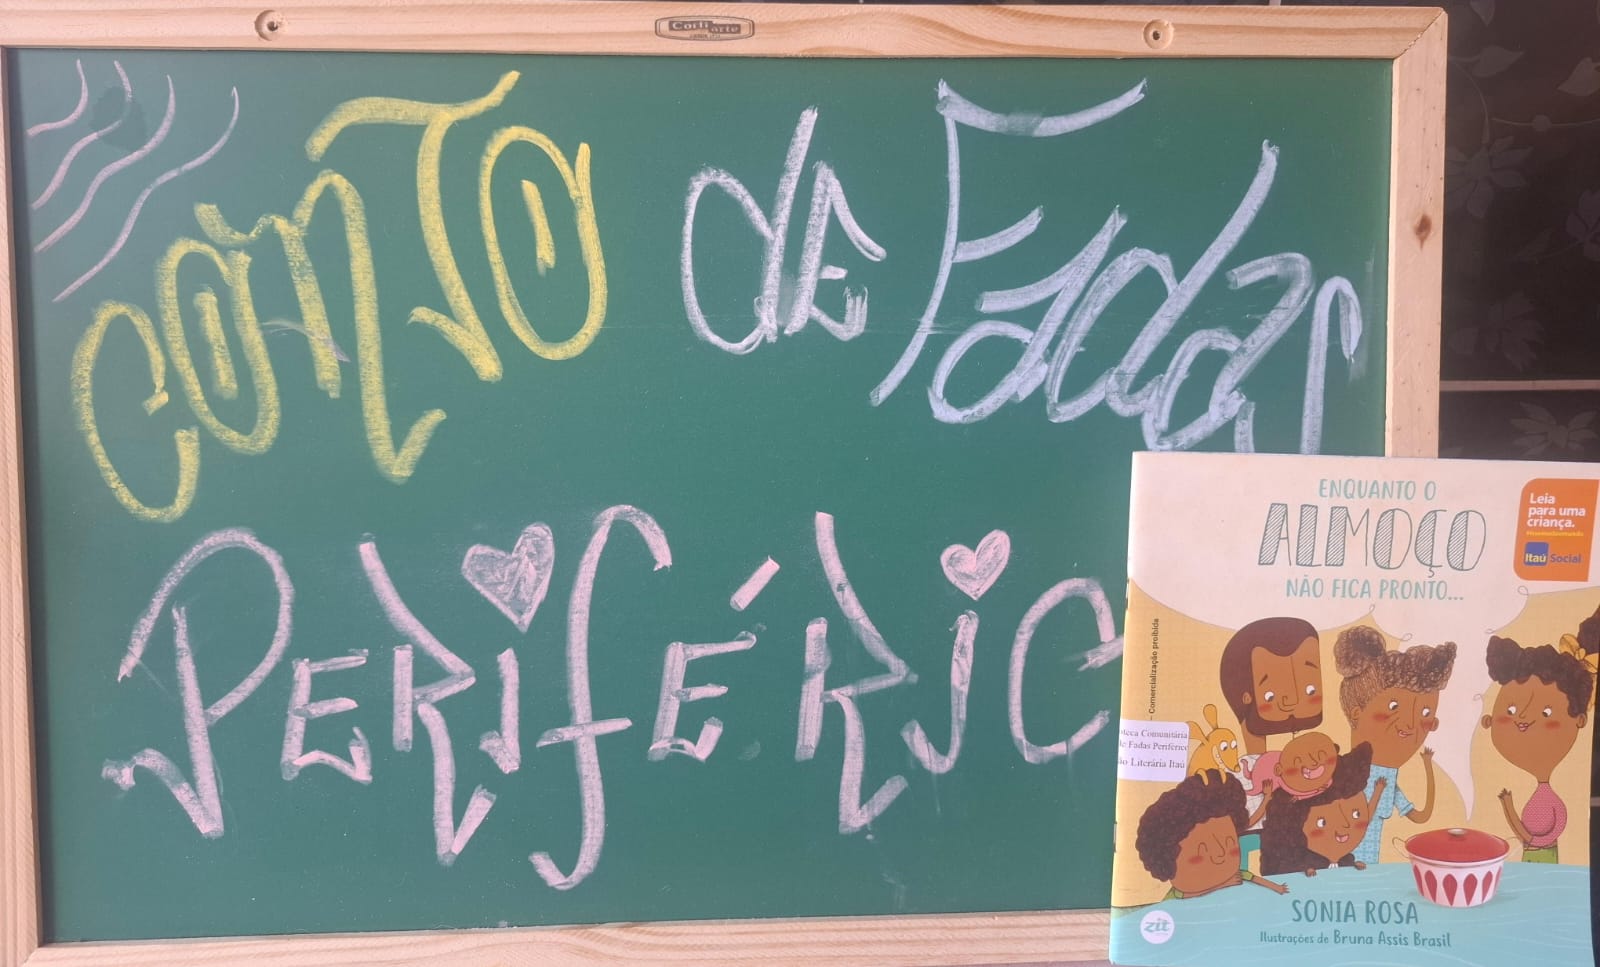 Corti arte
CONTO de Fadas
PERIFÉRIC
ENQUANTO O
ALMOÇO
NÃO FICA PRONTO...
Leia
para uma
criança.
Itaú Social
– Comercialização proibida
oteca Comunitária
de Fadas Periférico
ão Literária Itaú
zit
SONIA ROSA
Ilustrações de Bruna Assis Brasil